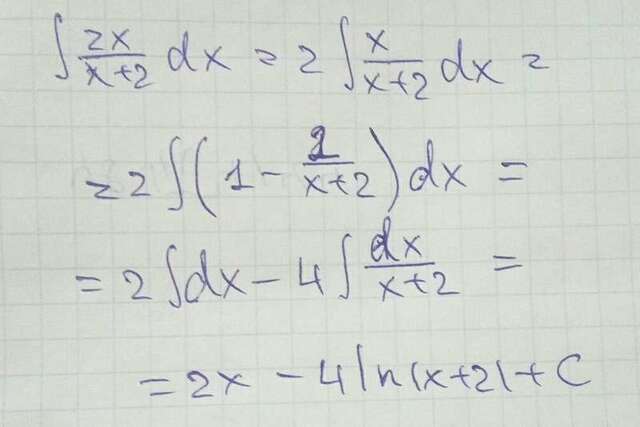 ∫ 2x/(x+2) dx = 2 ∫ x/(x+2) dx =
= 2 ∫ (1 - 2/(x+2)) dx =
= 2 ∫ dx - 4 ∫ dx/(x+2) =
= 2x - 4 ln|x+2| + C